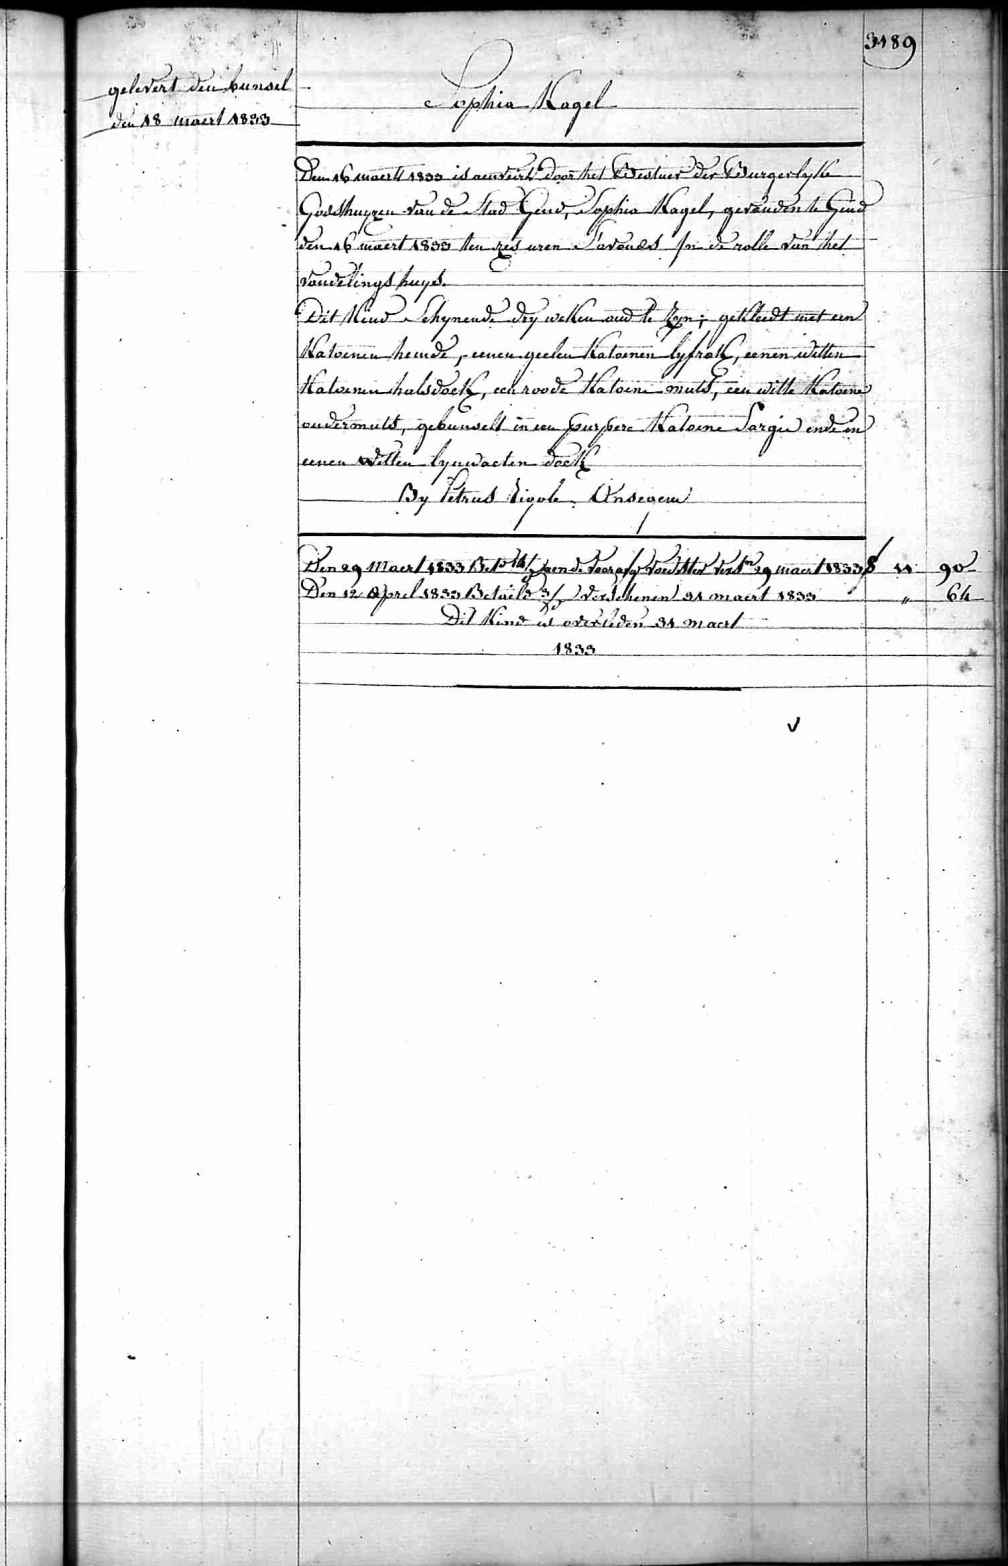 3189
gelevert den bunsel
den 18 maert 1833
Sophia Kagel
Den 16 maert 1833 is aenveird door het Bestuer der Burgerlyke
Godshuyzen van de Stad Gend, Sophia Kagel, gevonden te Gend
den 16 maert 1833 ten zes uren S'avonds in de rolle van het
vondelings huys.
Dit Kind Schynende dry weken oud te zyn; gekleedt met een
Katoenen hemde, eenen geelen Katoenen lyfrok, eenen witten
Katoenen halsdoek, een roode Katoene muts, een witte Katoene
ondermuts, gebunselt in een purpere Katoene Sargie ende in
eenen witten lynwaeten doek
By Petrus Vigole Ansegem
Den 29 Maert 1833 Bet voedster 29 maert 1833 11 90
Den 12 April 1833 Betaeld verschenen 31 maert 1833 " 64
Dit Kind is overleden 31 maert
1833